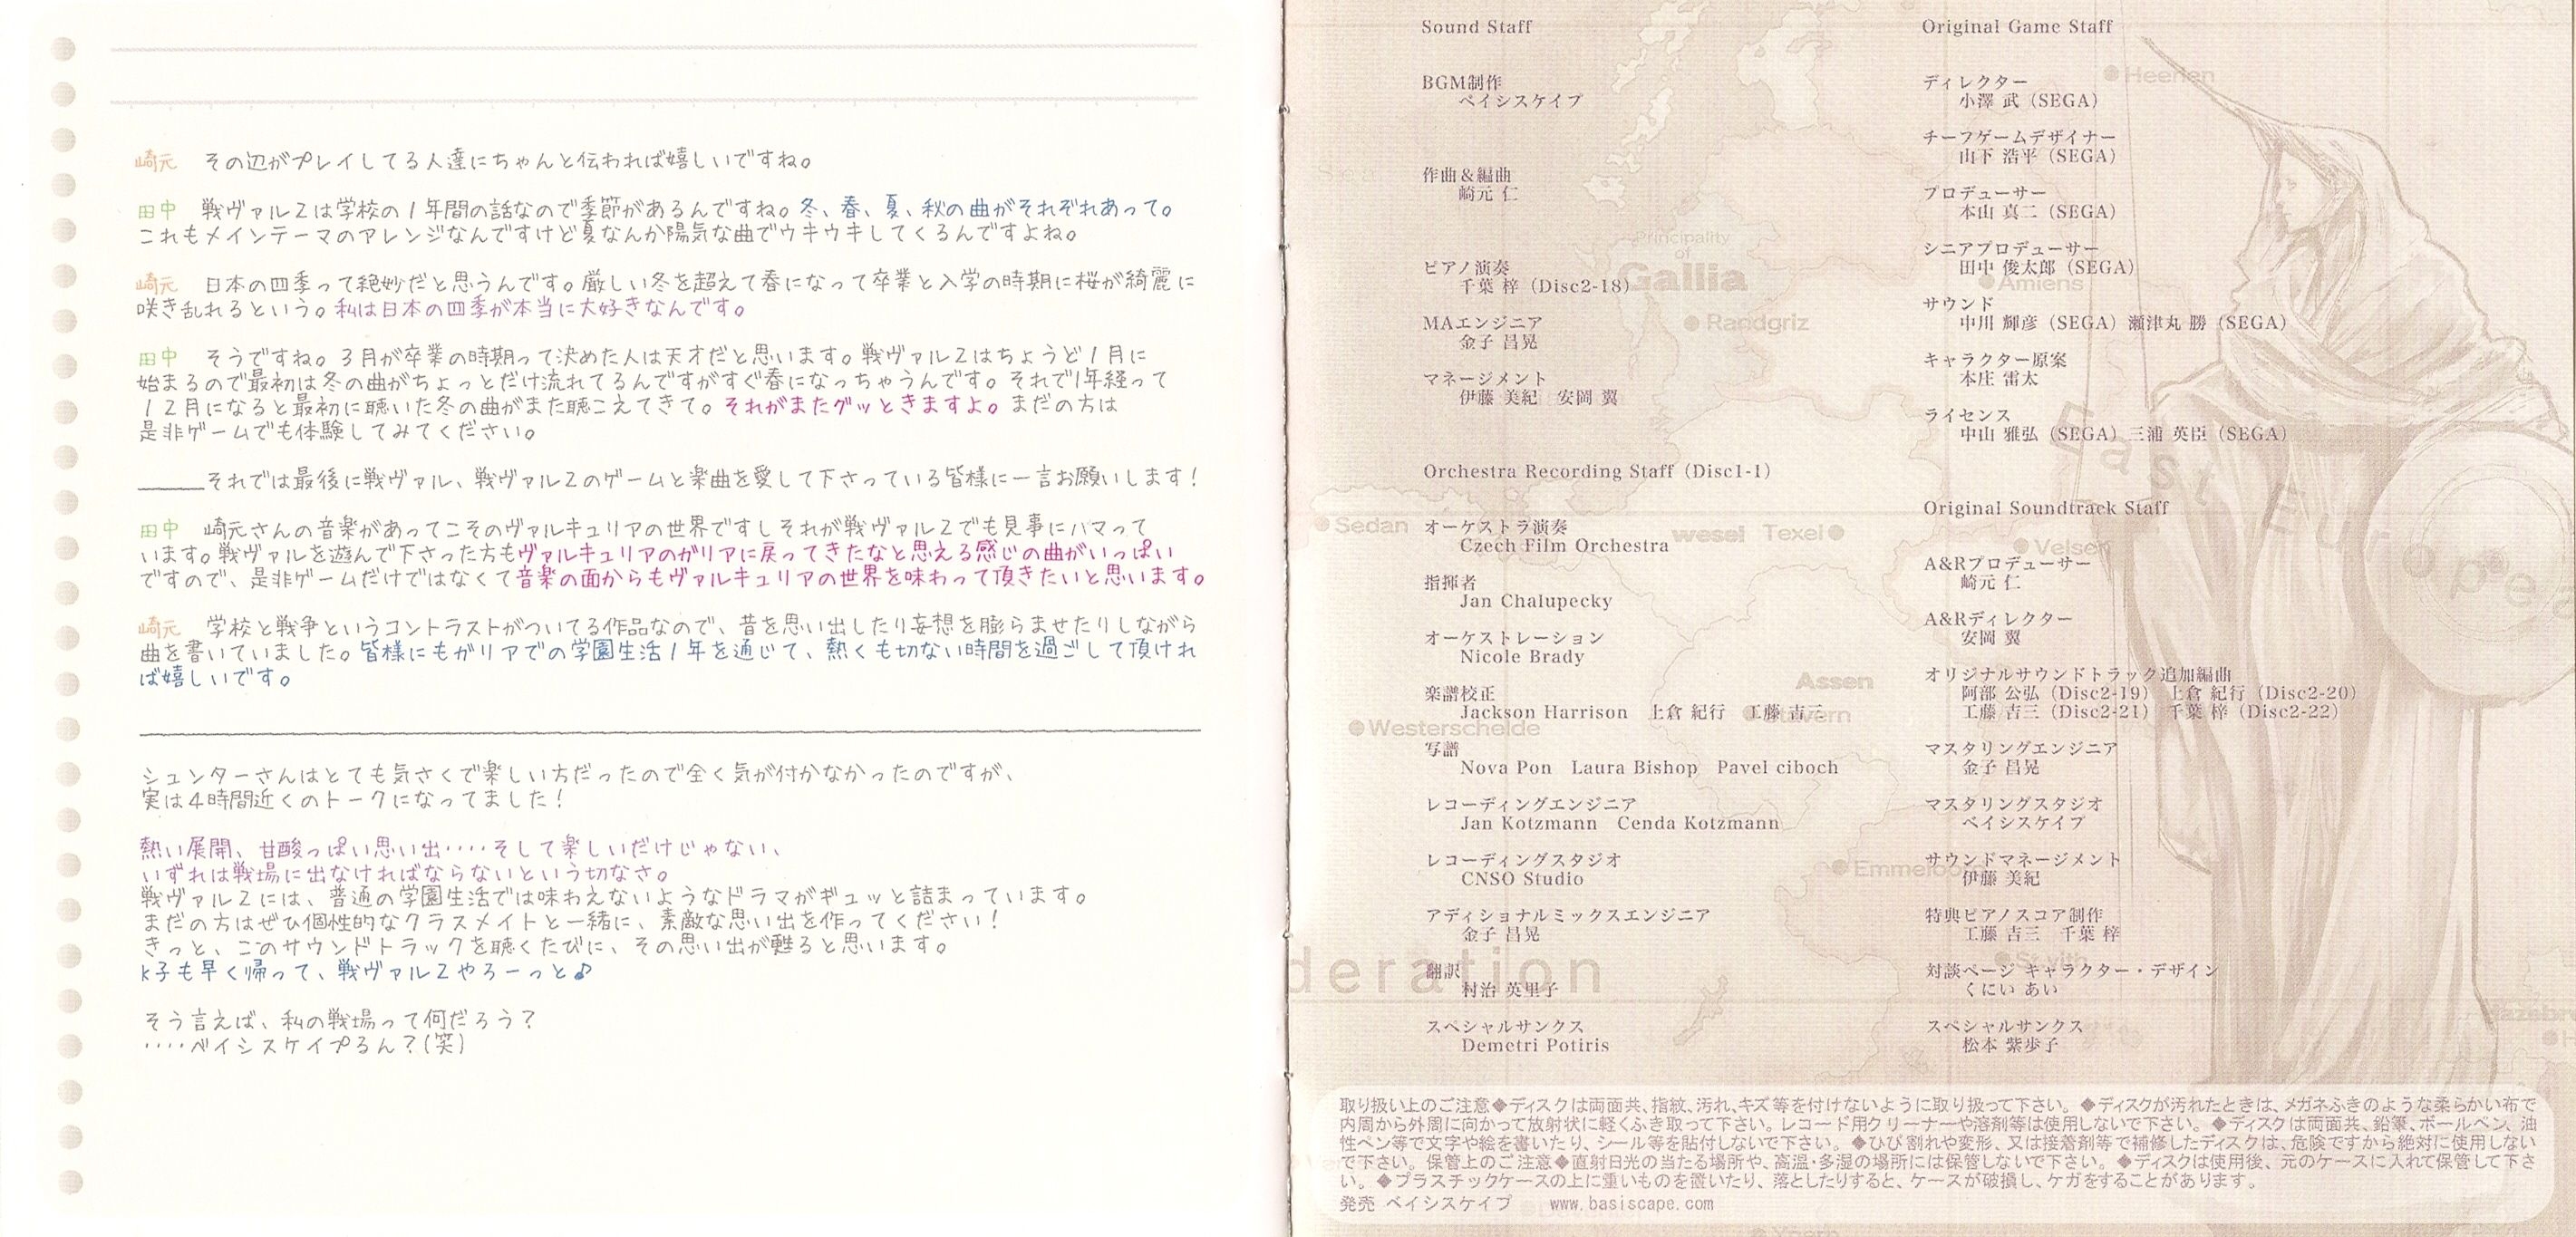 崎元　その辺がプレイしてる人達にちゃんと伝われば嬉しいですね。
田中　戦ヴァル2は学校の1年間の話なので季節があるんですね。冬、春、夏、秋の曲がそれぞれあって。
これもメインテーマのアレンジなんですけど夏なんか陽気な曲でウキウキしてくるんですよね。
崎元　日本の四季って絶妙だと思うんです。厳しい冬を超えて春になって卒業と入学の時期に桜が綺麗に
咲き乱れるという。私は日本の四季が本当に大好きなんです。
田中　そうですね。3月が卒業の時期って決めた人は天才だと思います。戦ヴァル2はちょうど1月に
始まるので最初は冬の曲がちょっとだけ流れてるんですがすぐ春になっちゃうんです。それで1年経って
12月になると最初に聴いた冬の曲がまた聴こえてきて。それがまたグッときますよ。まだの方は
是非ゲームでも体験してみてください。
____それでは最後に戦ヴァル、戦ヴァル2のゲームと楽曲を愛して下さっている皆様に一言お願いします！
田中　崎元さんの音楽があってこそのヴァルキュリアの世界ですしそれが戦ヴァル2でも見事にハマって
います。戦ヴァルを遊んで下さった方もヴァルキュリアのガリアに戻ってきたなと思える感じの曲がいっぱい
ですので、是非ゲームだけではなくて音楽の面からもヴァルキュリアの世界を味わって頂きたいと思います。
崎元　学校と戦争というコントラストがついてる作品なので、昔を思い出したり妄想を膨らませたりしながら
曲を書いていました。皆様にもガリアでの学園生活1年を通じて、熱くも切ない時間を過ごして頂けれ
ば嬉しいです。
シュンターさんはとても気さくで楽しい方だったので全く気が付かなかったのですが、
実は4時間近くのトークになってました！
熱い展開、甘酸っぱい思い出‥‥そして楽しいだけじゃない、
いずれは戦場に出なければならないという切なさ。
戦ヴァル2には、普通の学園生活では味わえないようなドラマがギュッと詰まっています。
まだの方はぜひ個性的なクラスメイトと一緒に、素敵な思い出を作ってください！
きっと、このサウンドトラックを聴くたびに、その思い出が甦ると思います。
K子も早く帰って、戦ヴァル2やろーっと♪
そう言えば、私の戦場って何だろう？
‥‥ベイシスケイプるん？（笑）
Sound Staff
BGM制作
ベイシスケイプ
作曲＆編曲
崎元 仁
ピアノ演奏
千葉 梓（Disc2-18）
MAエンジニア
金子 昌晃
マネージメント
伊藤 美紀　安岡 翼
Orchestra Recording Staff（Disc1-1）
オーケストラ演奏
Czech Film Orchestra
指揮者
Jan Chalupecky
オーケストレーション
Nicole Brady
楽譜校正
Jackson Harrison　上倉 紀行　工藤 吉三
写譜
Nova Pon　Laura Bishop　Pavel ciboch
レコーディングエンジニア
Jan Kotzmann　Cenda Kotzmann
レコーディングスタジオ
CNSO Studio
アディショナルミックスエンジニア
金子 昌晃
翻訳
村治 英里子
スペシャルサンクス
Demetri Potiris
Original Game Staff
ディレクター
小澤 武（SEGA）
チーフゲームデザイナー
山下 浩平（SEGA）
プロデューサー
本山 真二（SEGA）
シニアプロデューサー
田中 俊太郎（SEGA）
サウンド
中川 輝彦（SEGA）瀬津丸 勝（SEGA）
キャラクター原案
本庄 雷太
ライセンス
中山 雅弘（SEGA）三浦 英臣（SEGA）
Original Soundtrack Staff
A&Rプロデューサー
崎元 仁
A&Rディレクター
安岡 翼
オリジナルサウンドトラック追加編曲
阿部 公弘（Disc2-19）　上倉 紀行（Disc2-20）
工藤 吉三（Disc2-21）　千葉 梓（Disc2-22）
マスタリングエンジニア
金子 昌晃
マスタリングスタジオ
ベイシスケイプ
サウンドマネージメント
伊藤 美紀
特典ピアノスコア制作
工藤 吉三　千葉 梓
対談ページ キャラクター・デザイン
くにい あい
スペシャルサンクス
松本 紫歩子
Heerlen
Principality
of
Gallia
Amiens
Randgriz
East Europea
Sedan
wesel
Texel
Velsen
Assen
Westerschelde
Emmeloord
deration
St.vith
取り扱い上のご注意◆ディスクは両面共、指紋、汚れ、キズ等を付けないように取り扱って下さい。◆ディスクが汚れたときは、メガネふきのような柔らかい布で
内周から外周に向かって放射状に軽くふき取って下さい。レコード用クリーナーや溶剤等は使用しないで下さい。◆ディスクは両面共、鉛筆、ボールペン、油
性ペン等で文字や絵を書いたり、シール等を貼付しないで下さい。◆ひび割れや変形、又は接着剤等で補修したディスクは、危険ですから絶対に使用しない
で下さい。保管上のご注意◆直射日光の当たる場所や、高温・多湿の場所には保管しないで下さい。◆ディスクは使用後、元のケースに入れて保管して下さ
い。◆プラスチックケースの上に重いものを置いたり、落としたりすると、ケースが破損し、ケガをすることがあります。
発売 ベイシスケイプ　www.basiscape.com